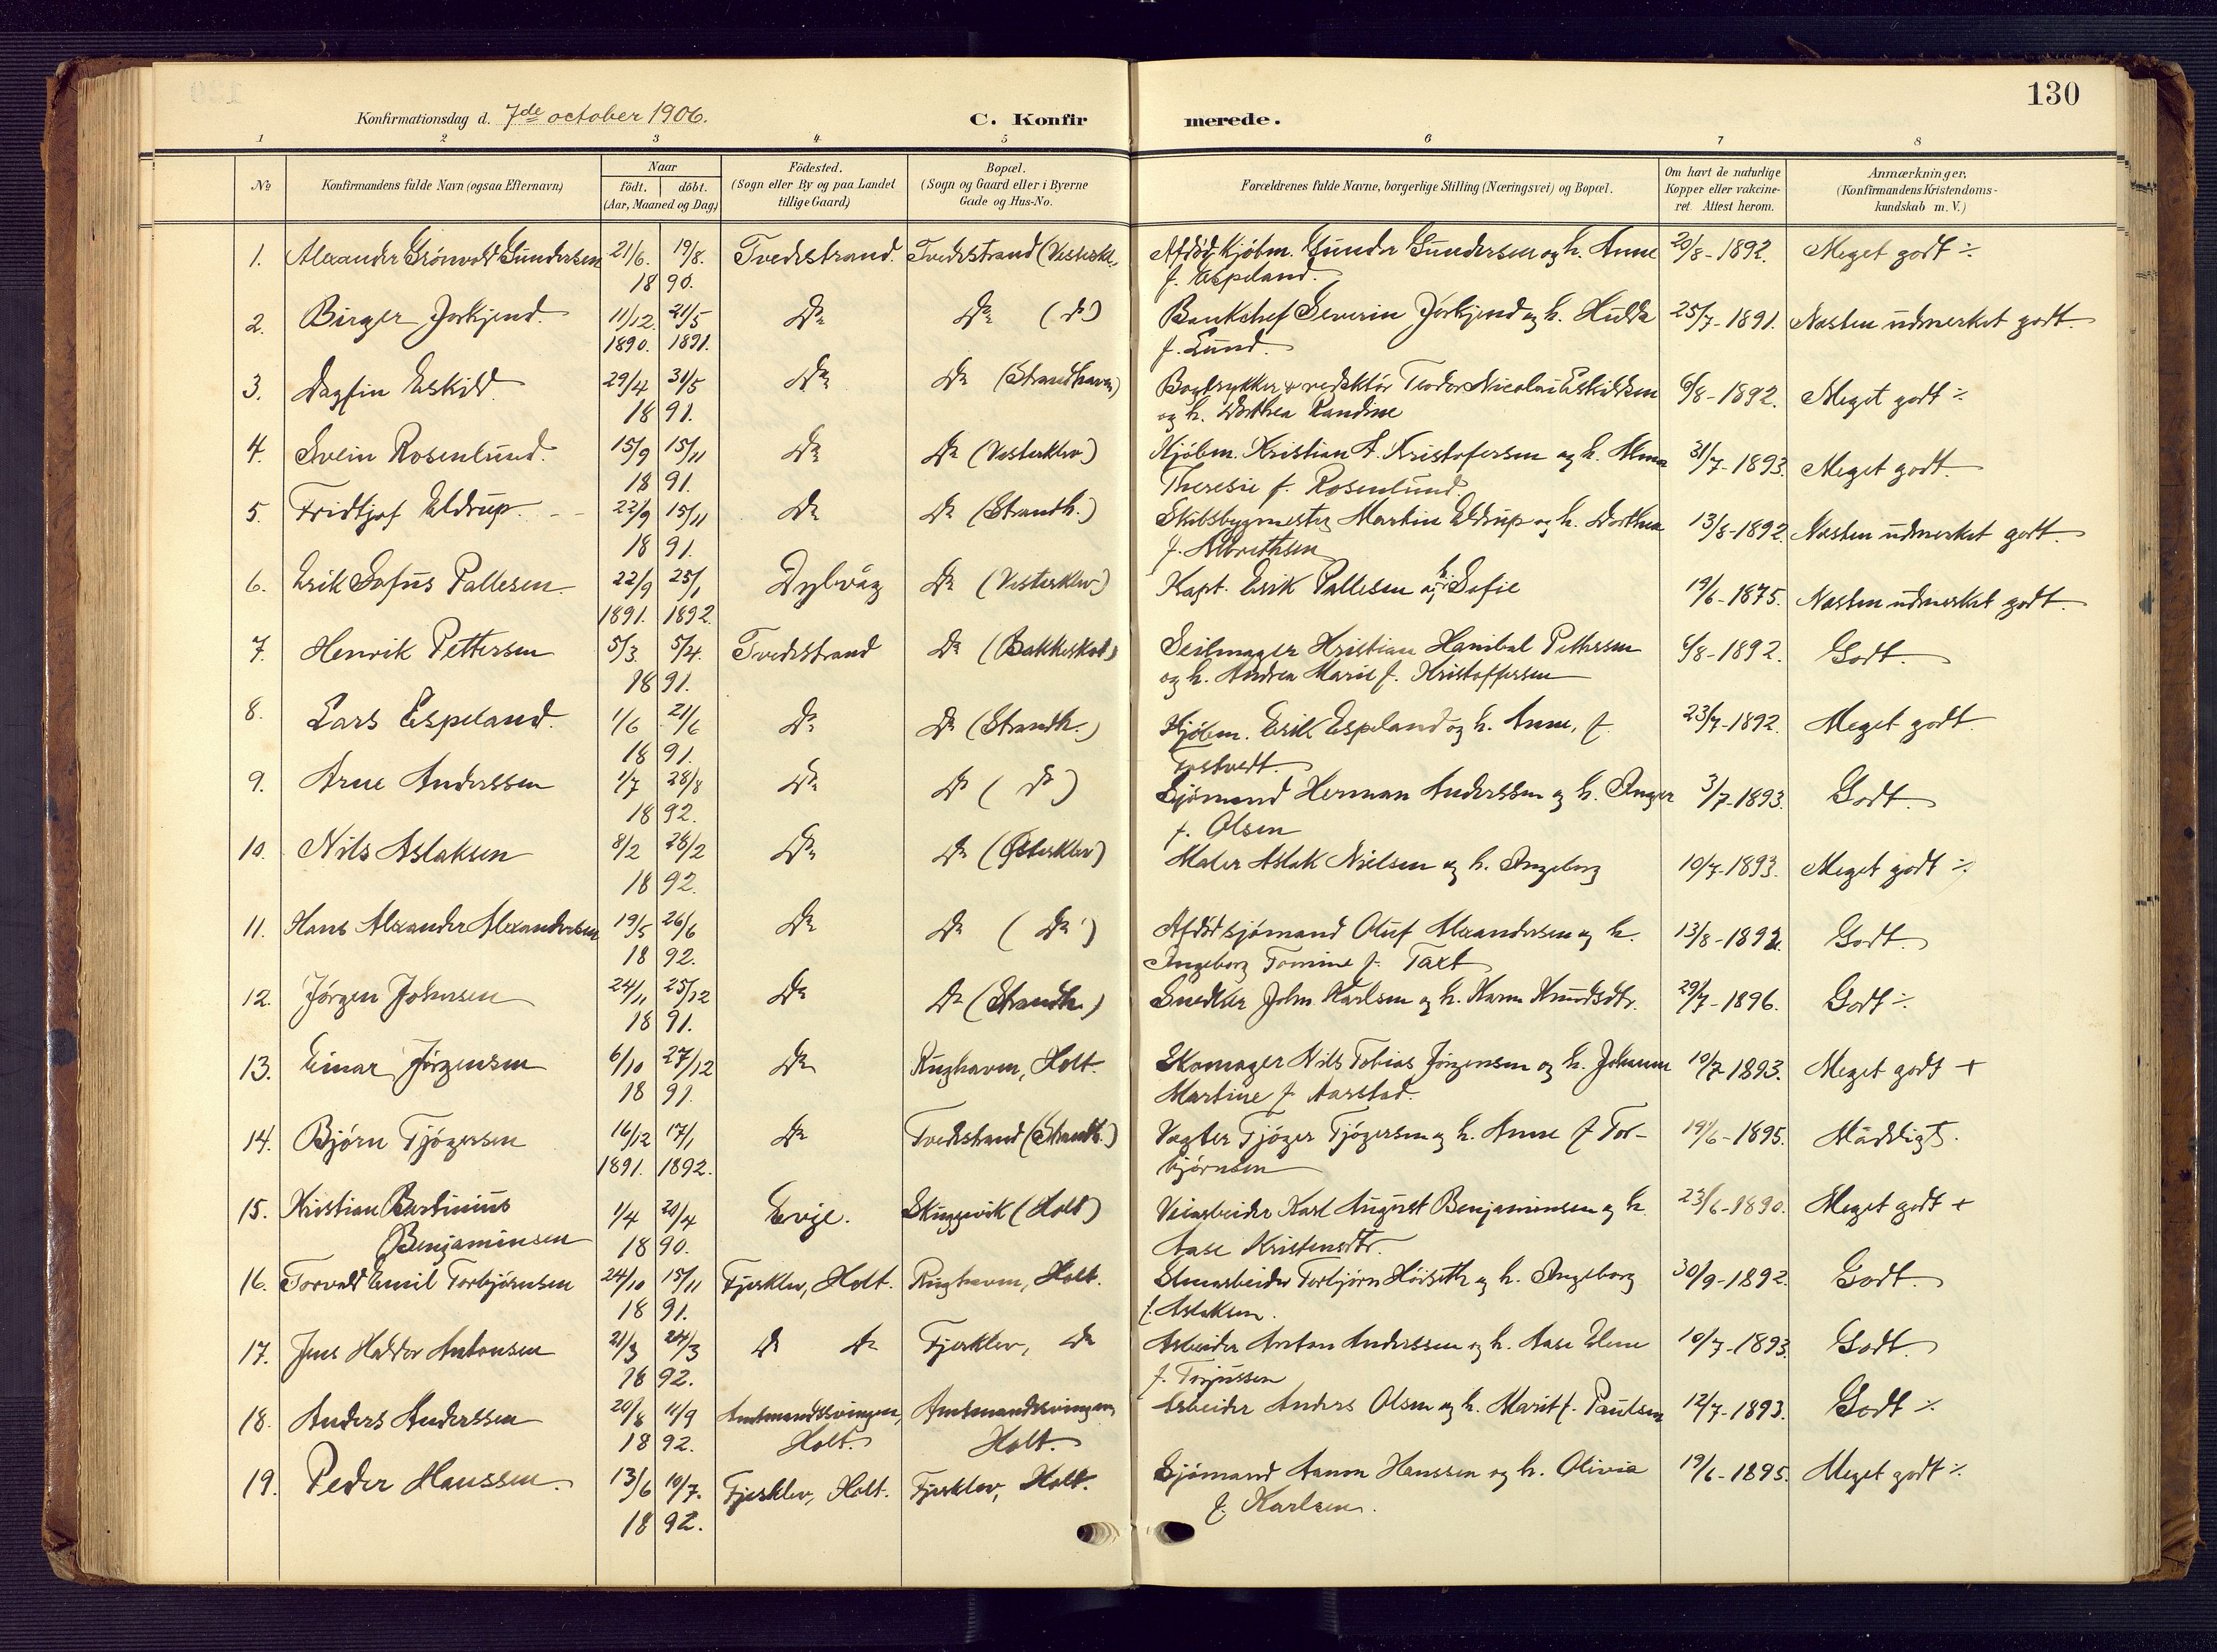 130
Konfirmationsdag d. 7de october 1906. C. Konfirmerede.
1 2 3 4 5 6 7 8
No Konfirmandens fulde Navn (ogsaa Efternavn) Naar födt. döbt. (Aar, Maaned og Dag) Födested. (Sogn eller By og paa Landet tillige Gaard) Bopæl. (Sogn og Gaard eller i Byerne Gade og Hus-No. Forældrenes fulde Navne, borgerlige Stilling (Næringsvei) og Bopæl. Om havt de naturlige Kopper eller vakcineret. Attest herom. Anmærkninger, (Konfirmandens Kristendomskundskab m. V.)
1. Alexander Grönvold Gundersen 21/6. 19/8. Tvedestrand. Tvedestrand (Vesterkl. Afdöd kjöbm. Gunder Gundersen og h. Anne 20/8-1892. Meget godt ÷
1890. f. Espeland.
2. Birger Jorkjend. 11/12. 21/5 Do Do (do) Bankchef Severin Jorkjend og h. Hulda 25/7-1891. Næsten udmerket godt.
1890. 1891. f. Lund.
3. Dagfin Eskild. 29/4 31/5 Do Do (Strandhaven) Bogtrykker & redaktör Teodor Nicolai Eskildsen 6/8-1892. Meget godt ÷
1891. og h. Dorthea Randine
4. Svein Rosenlund. 15/9 15/11 Do Do (Vesterklev) Kjöbm. Kristian A. Kristofersen og h. Alma 31/7-1893. Meget godt.
1891. Theresie f. Rosenlund.
5. Fridtjof Eldrup. 22/9 15/11 Do Do (Strandh.) Skibsbygmester Martin Eldrup og h. Dorthea 13/8-1892. Næsten udmerket godt.
1891. f. Albrethsen
6. Erik Sofus Pallesen. 22/9 25/1 Dybvåg Do (Vesterklev) Kapt. Erik Pallesen og h. Sofie 19/6-1875. Næsten udmerket godt.
1891. 1892.
7. Henrik Pettersen 5/3. 5/4. Tvedestrand Do (Bakkeskot) Seilmager Kristian Hanibal Pettersen 6/8-1892. Godt.
1891. og h. Andrea Marie f. Kristoffersen
8. Lars Espeland. 1/6 21/6 Do Do (Strandh.) Kjöbm. Erik Espeland og h. Anne, f. 23/7-1892. Meget godt.
1891. Tostvedt.
9. Arne Anderssen 1/7 28/8 Do Do (do) Sjömand Herman Anderssen og h. Inger 3/7-1893. Godt.
1892. f. Olsen
10. Nils Aslaksen 8/2 28/2 Do Do (Österklev) Maler Aslak Nielsen og h. Ingeborg 10/7-1893. Meget godt ÷
1892.
11. Hans Alexander Alexandersen 19/5 26/6 Do Do (Do) Afdöd sjömand Oluf Alexandersen og h. 13/8-1892. Godt.
1892. Ingeborg Tomine f. Taxt
12. Jörgen Johnsen 24/11 25/12 Do Do (Strandh.) Snedker John Karlsen og h. Karen Knudsdtr. 29/7-1896. Godt ÷
1891.
13. Einar Jörgensen 6/10 27/12 Do Kughaven, Holt. Skomager Nils Tobias Jörgensen og h. Johanne 10/7-1893. Meget godt +
1891. Martine f. Aarstad.
14. Björn Tjögersen 16/12 17/1 Do Tvedestrand (Strandh.) Vægter Tjöger Tjögersen og h. Anne f Tor- 19/6-1895. Mådeligt.
1891. 1892. björnsen
15. Kristian Bertinius 1/4 20/4 Evje. Skuggevik (Holt) Veiarbeider Karl August Benjaminsen og h. 23/6-1890. Meget godt +
Benjaminsen 1890. Aase Kristensdtr.
16. Torvald Emil Torbjörnsen 24/10 15/11 Fjerklev, Holt. Kughaven, Holt. Stenarbeider Torbjörn Höiseth og h. Ingeborg 30/9-1892. Godt.
1891. f. Aslaksen.
17. Jens Haldor Antonsen 21/3 24/3 Do Do Fjerklev, Do Arbeider Anton Anderssen og h. Aase Elene 10/7-1893. Godt.
1892. f. Torjussen
18. Anders Anderssen 20/8 11/9 Amtmandsvingen, Amtmandssvingen, Arbeider Anders Olsen og h. Marit f. Paulsen 12/7-1893. Godt ÷
1892. Holt. Holt.
19. Peder Hanssen. 13/6 10/7. Fjerklev, Holt. Fjerklev, Holt. Sjömand Aanon Hanssen og h. Olivia 19/6-1895. Meget godt ÷
1892. f. Karlsen.